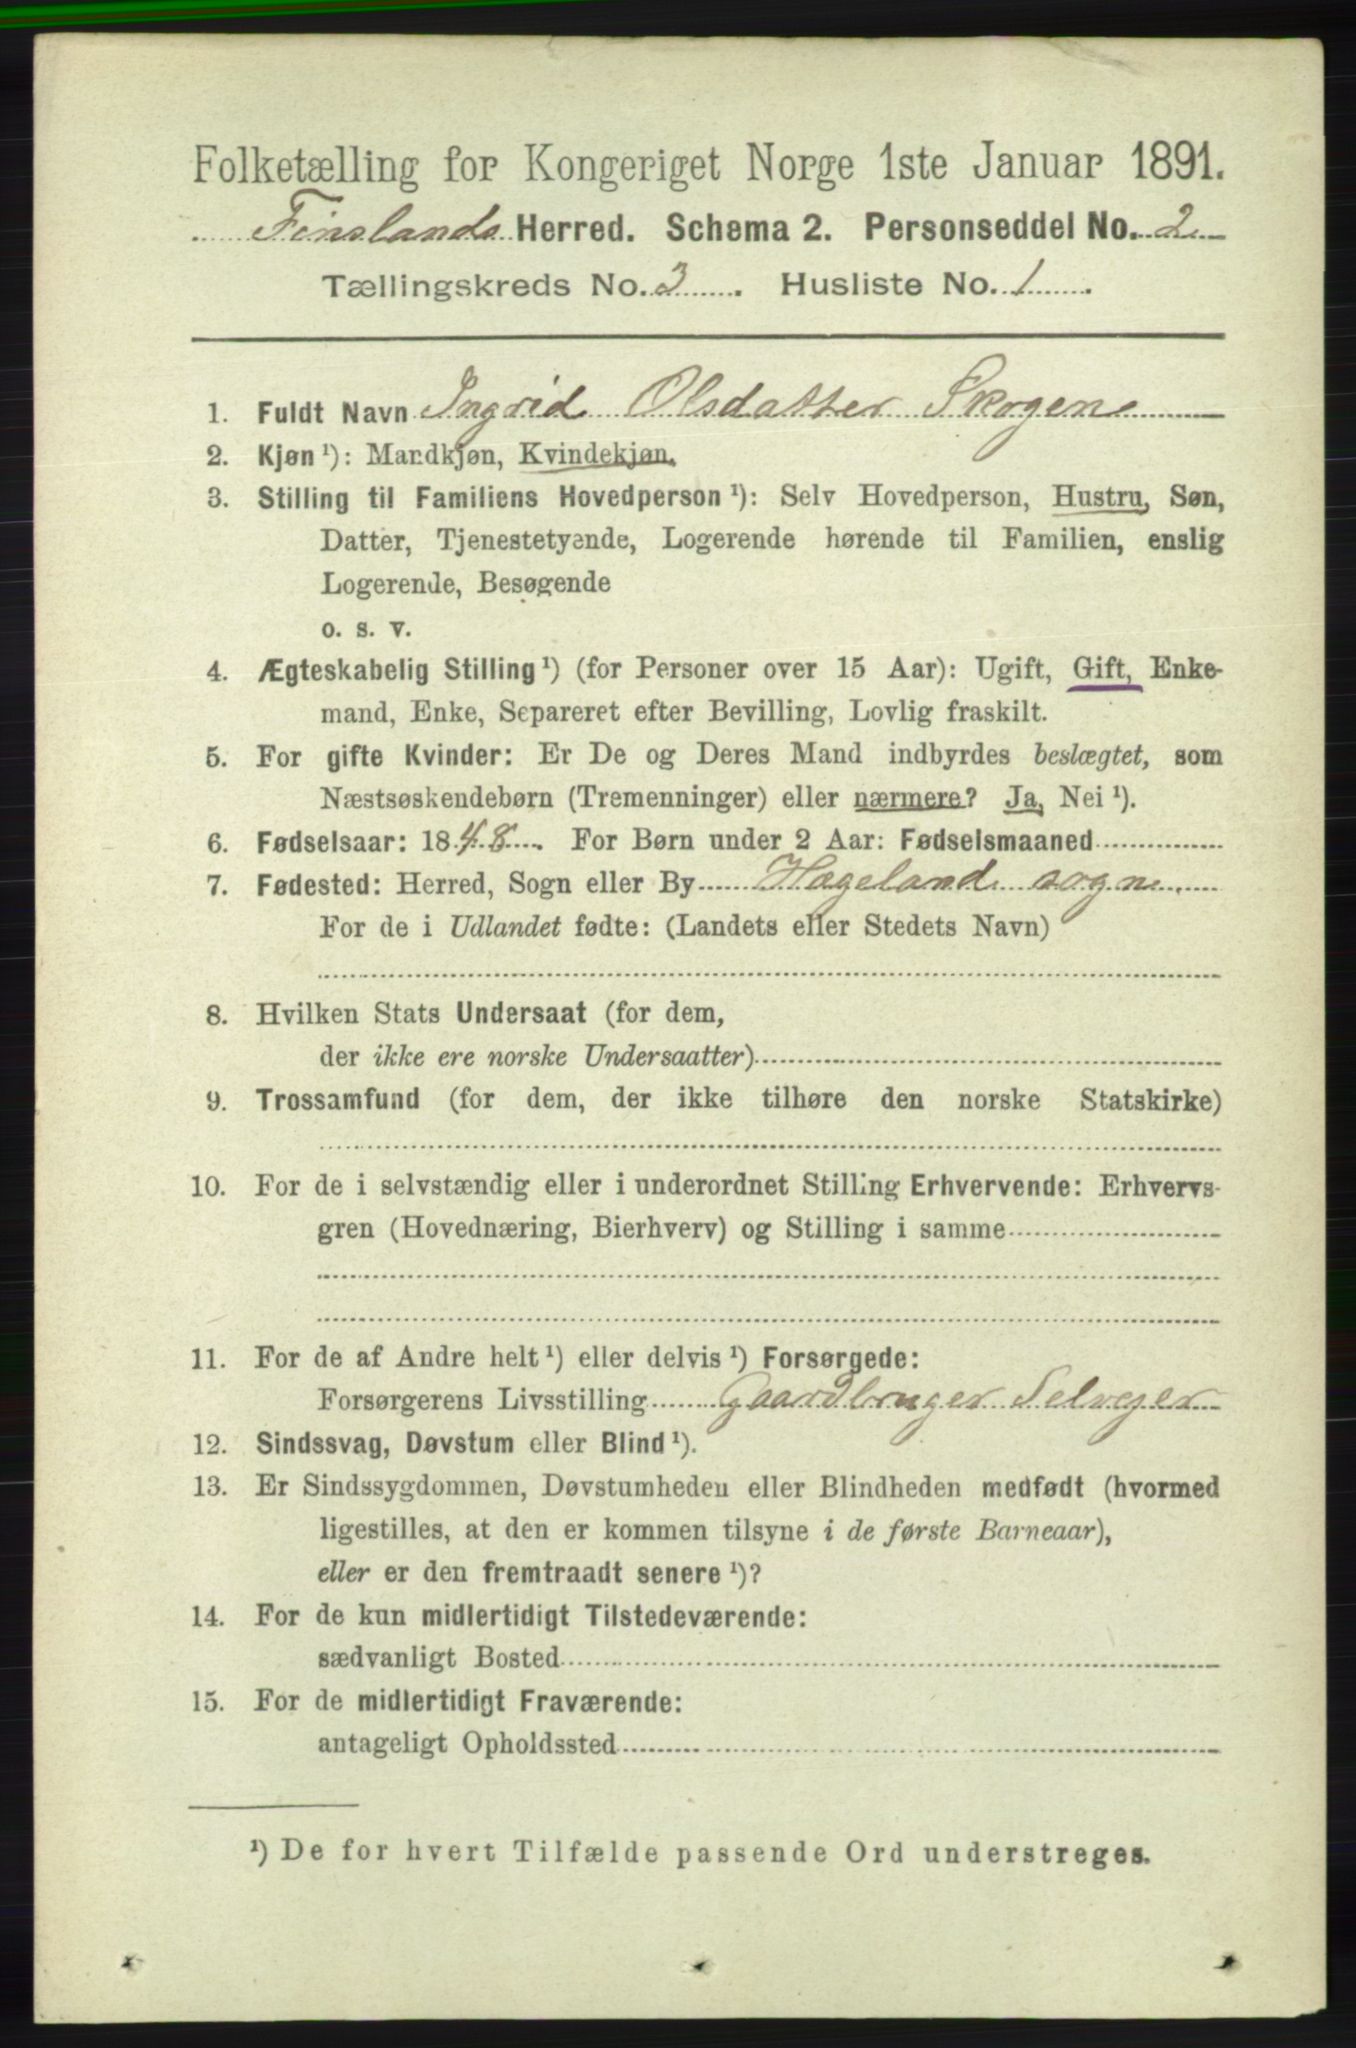 Folketælling for Kongeriget Norge 1ste Januar 1891.
Finslands Herred. Schema 2. Personseddel No. 2
Tællingskreds No. 3. Husliste No. 1.
1. Fuldt Navn Ingrid Olsdatter Skogen
2. Kjøn ¹): Mandkjøn, Kvindekjøn.
3. Stilling til Familiens Hovedperson ¹): Selv Hovedperson, Hustru, Søn,
Datter, Tjenestetyende, Logerende hørende til Familien, enslig
Logerende, Besøgende
o. s. v.
4. Ægteskabelig Stilling ¹) (for Personer over 15 Aar): Ugift, Gift, Enke-
mand, Enke, Separeret efter Bevilling, Lovlig fraskilt.
5. For gifte Kvinder: Er De og Deres Mand indbyrdes beslægtet, som
Næstsøskendebørn (Tremenninger) eller nærmere? Ja, Nei ¹).
6. Fødselsaar: 1848. For Børn under 2 Aar: Fødselsmaaned
7. Fødested: Herred, Sogn eller By Hægeland sogn.
For de i Udlandet fødte: (Landets eller Stedets Navn)
8. Hvilken Stats Undersaat (for dem,
der ikke ere norske Undersaatter)
9. Trossamfund (for dem, der ikke tilhøre den norske Statskirke)
10. For de i selvstændig eller i underordnet Stilling Erhvervende: Erhvervs-
gren (Hovednæring, Bierhverv) og Stilling i samme
11. For de af Andre helt ¹) eller delvis ¹) Forsørgede:
Forsørgerens Livsstilling Gaardbruger Selvejer
12. Sindssvag, Døvstum eller Blind ¹).
13. Er Sindssygdommen, Døvstumheden eller Blindheden medfødt (hvormed
ligestilles, at den er kommen tilsyne i de første Barneaar),
eller er den fremtraadt senere ¹)?
14. For de kun midlertidigt Tilstedeværende:
sædvanligt Bosted
15. For de midlertidigt Fraværende:
antageligt Opholdssted
¹) De for hvert Tilfælde passende Ord understreges.